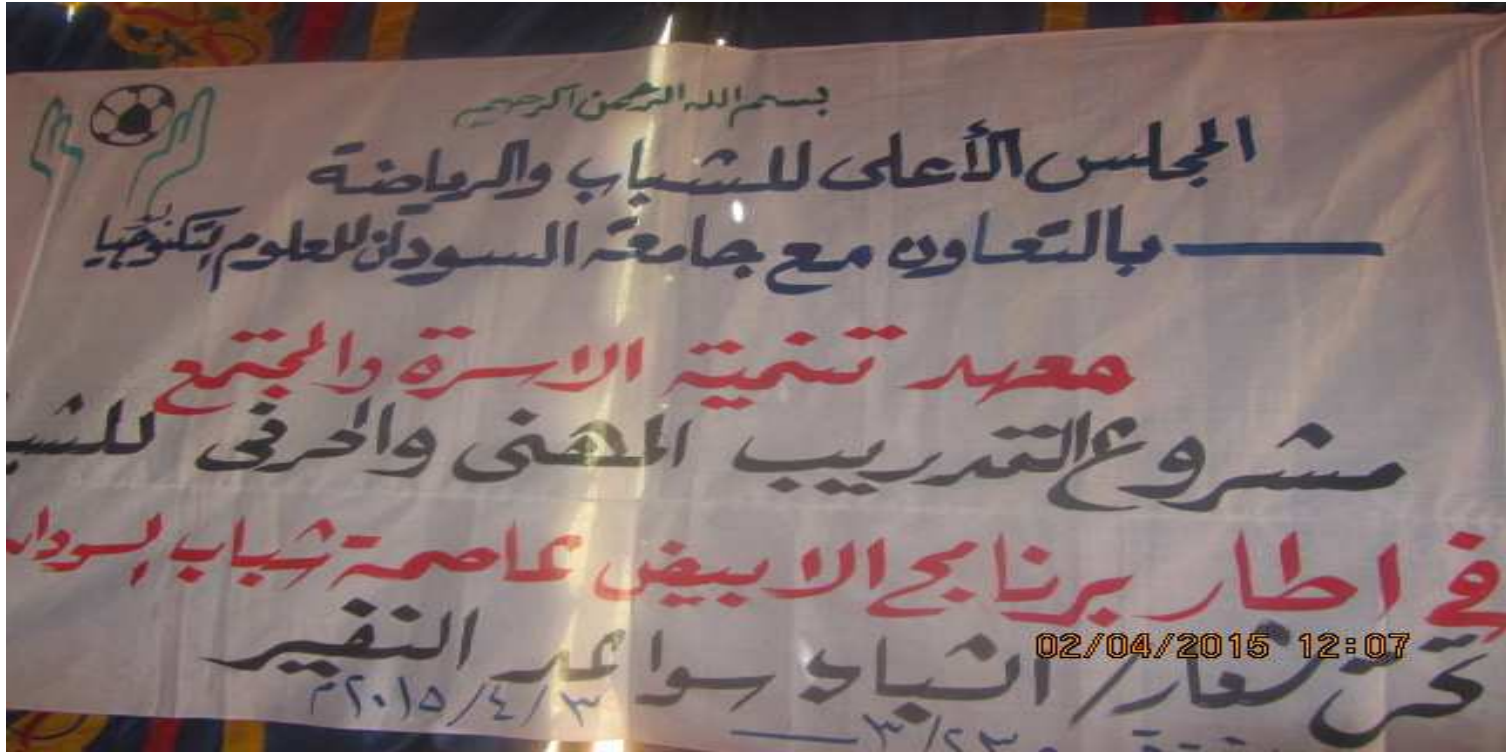 بسم الله الرحمن الرحيم
المجلس الأعلى للشباب والرياضة
بالتعاون مع جامعة السودان للعلوم والتكنولوجيا
معهد تنمية الاسرة والمجتمع
مشروع التدريب المهنى والحرفى
في اطار برنامج الابيض عاصمة شباب السودان
تحت شعار / الشباب سواعد النفير
٣/٢٣ ــ ٢٠١٥/٤/٣م
02/04/2015 12:07